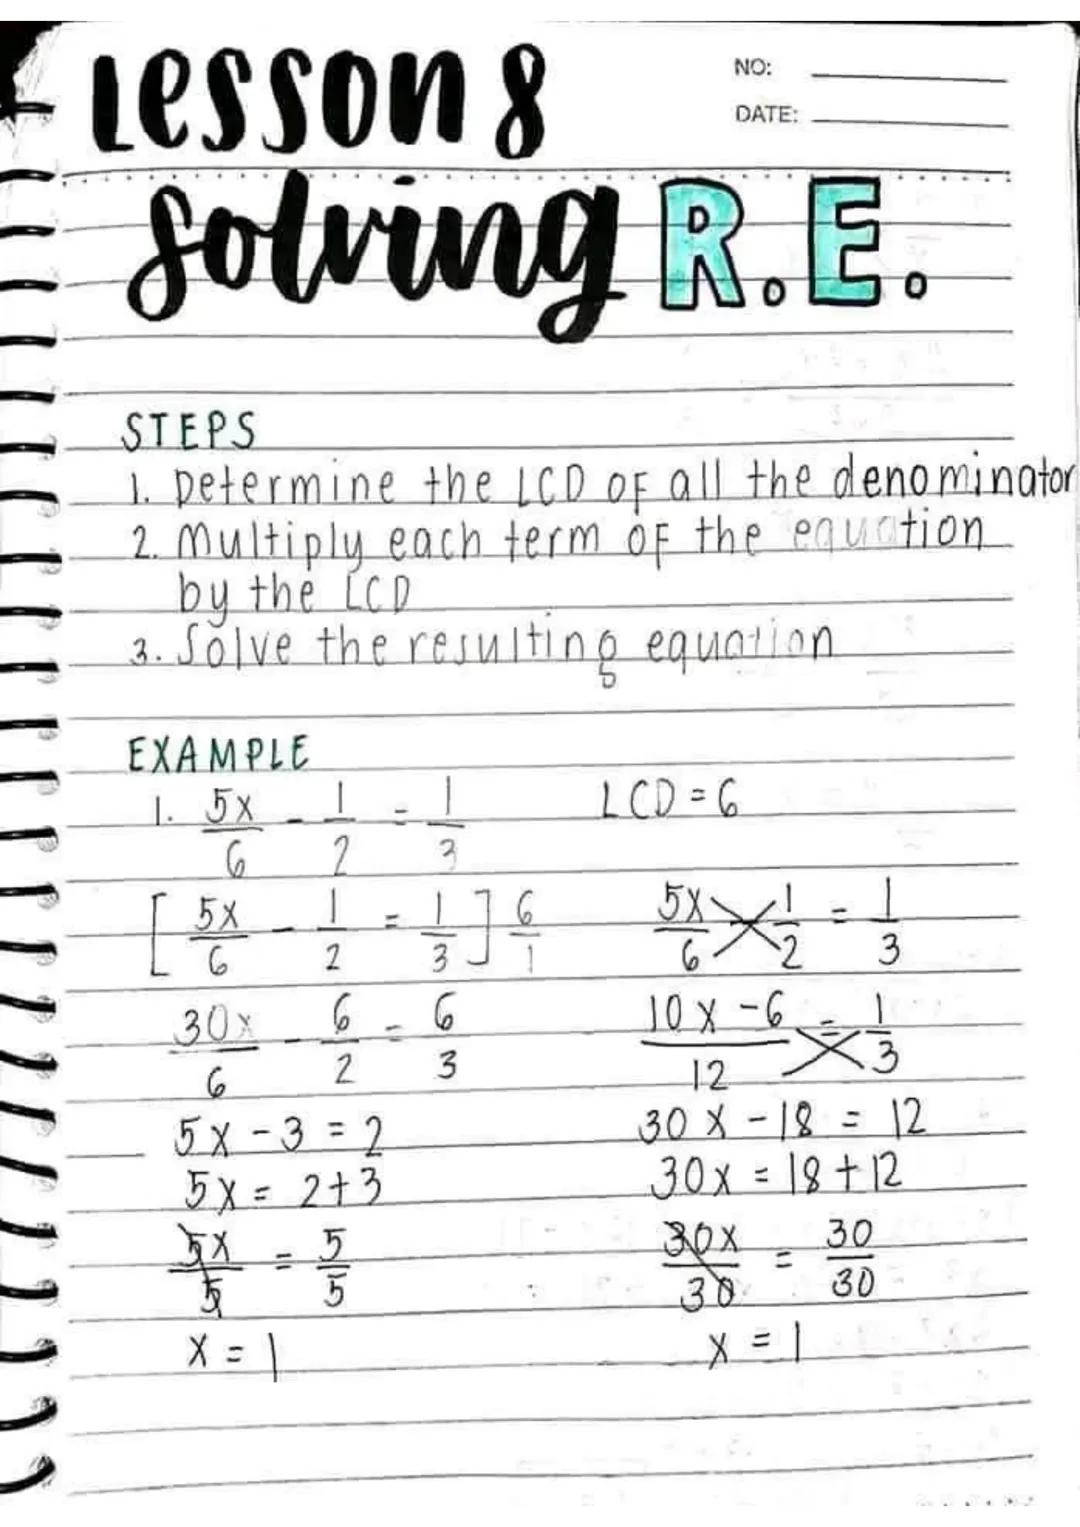 Lesson 8
NO:
DATE:
Solving R.E.
STEPS
1. Determine the LCD of all the denominator
2. Multiply each term of the equation
by the LCD
3. Solve the resulting equation
EXAMPLE
1. 5x/6 - 1/2 = 1/3 LCD = 6
[5x/6 - 1/2 = 1/3] 6/1 5x/6 - 1/2 = 1/3
30x/6 - 6/2 = 6/3 10x - 6/12 = 1/3
5x - 3 = 2 30x - 18 = 12
5x = 2+3 30x = 18+12
5x/5 = 5/5 30x/30 = 30/30
x = 1 x = 1